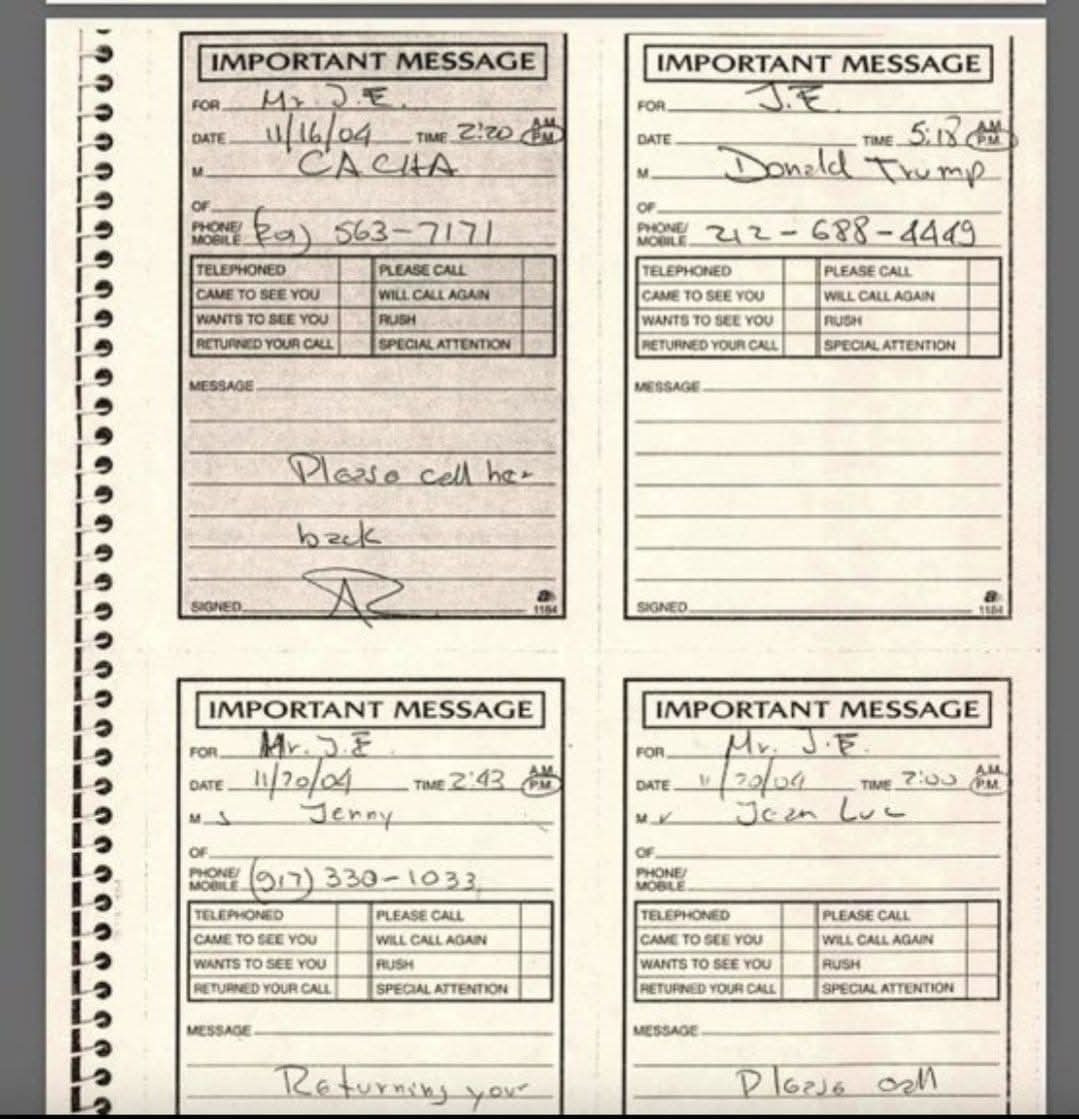 IMPORTANT MESSAGE
FOR Mr. J.E.
DATE 11/16/04 TIME 2:20 A.M. P.M.
M CACHA
OF
PHONE/ MOBILE 563-7171
TELEPHONED PLEASE CALL
CAME TO SEE YOU WILL CALL AGAIN
WANTS TO SEE YOU RUSH
RETURNED YOUR CALL SPECIAL ATTENTION
MESSAGE
Please call her
back
SIGNED
1184
IMPORTANT MESSAGE
FOR J.E.
DATE TIME 5:18 A.M. P.M.
M Donald Trump
OF
PHONE/ MOBILE 212-688-4449
TELEPHONED PLEASE CALL
CAME TO SEE YOU WILL CALL AGAIN
WANTS TO SEE YOU RUSH
RETURNED YOUR CALL SPECIAL ATTENTION
MESSAGE
SIGNED
1184
IMPORTANT MESSAGE
FOR Mr. J.E.
DATE 11/20/04 TIME 2:43 A.M. P.M.
M s Jenny
OF
PHONE/ MOBILE (917) 330-1033
TELEPHONED PLEASE CALL
CAME TO SEE YOU WILL CALL AGAIN
WANTS TO SEE YOU RUSH
RETURNED YOUR CALL SPECIAL ATTENTION
MESSAGE
Returning your
IMPORTANT MESSAGE
FOR Mr. J.E.
DATE 11/20/04 TIME A.M. P.M.
M r Jean Luc
OF
PHONE/ MOBILE
TELEPHONED PLEASE CALL
CAME TO SEE YOU WILL CALL AGAIN
WANTS TO SEE YOU RUSH
RETURNED YOUR CALL SPECIAL ATTENTION
MESSAGE
Please call